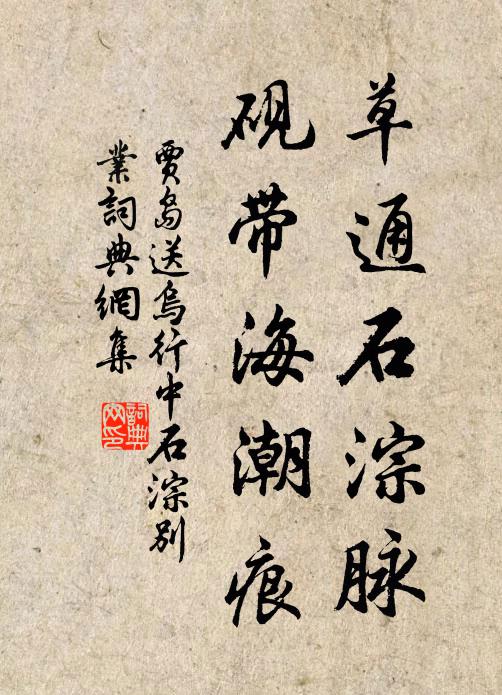 草通石淙脉
砚带海潮痕
贾岛送乌行中石淙别
業詞典網集
詞典
网印